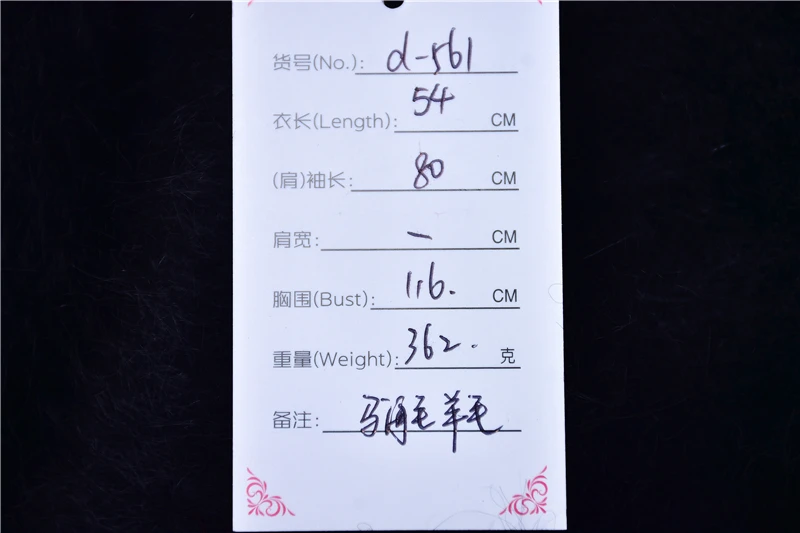 货号(No.): d-561
衣长(Length): 54 CM
(肩)袖长: 80 CM
肩宽: 一 CM
胸围(Bust): 116. CM
重量(Weight): 362. 克
备注: 马海毛羊毛